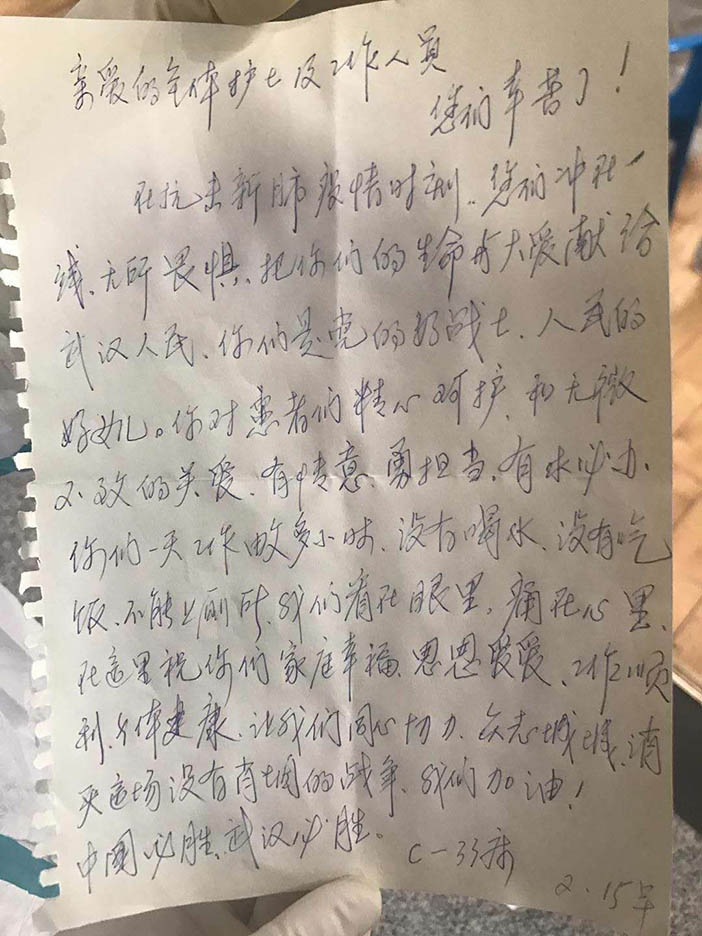 亲爱的全体护士及工作人员
您们辛苦了！
在抗击新肺疫情时刻..您们冲在一
线、无所畏惧、把你们的生命与大爱献给
武汉人民、你们是党的好战士、人民的
好女儿。你对患者们精心呵护、和无微
不致的关爱、有情意、勇担当、有求必办、
你们一天工作多小时、没有喝水、没有吃
饭、不能上厕所、我们看在眼里，痛在心里、
在这里祝你们家庭幸福、恩恩爱爱、工作顺
利、身体健康、让我们同心协力、众志城城、消
灭这场没有硝烟的战争、我们加油！
中国必胜、武汉必胜。
C-33床
2.15午